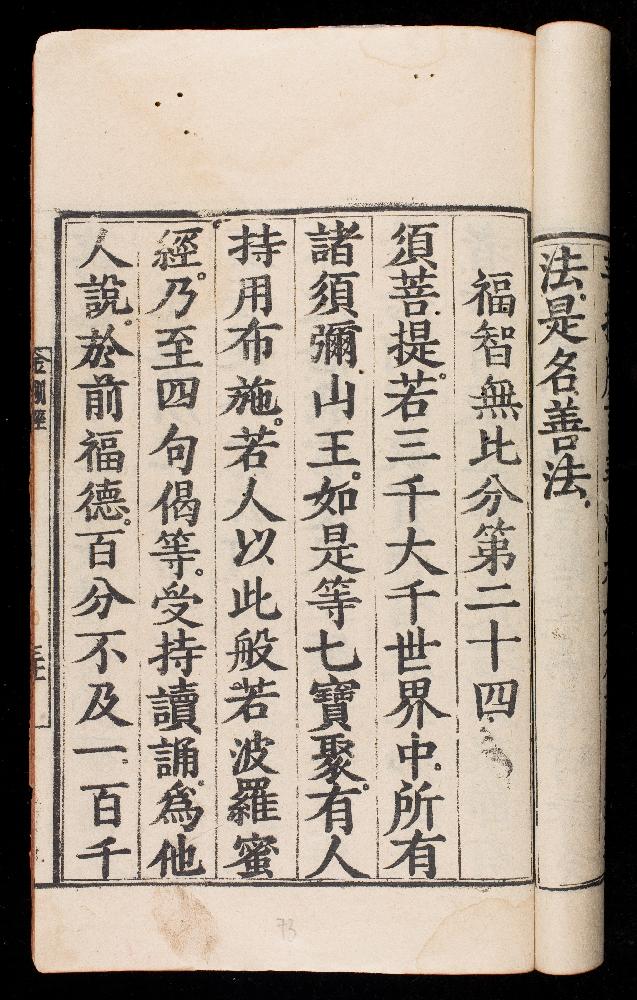 法是名善法
福智無比分第二十四
須菩提。若三千大千世界中。所有
諸須彌山王。如是等七寶聚。有人
持用布施。若人以此般若波羅蜜
經。乃至四句偈等。受持讀誦。爲他
人說。於前福德。百分不及一。百千
金剛經
73